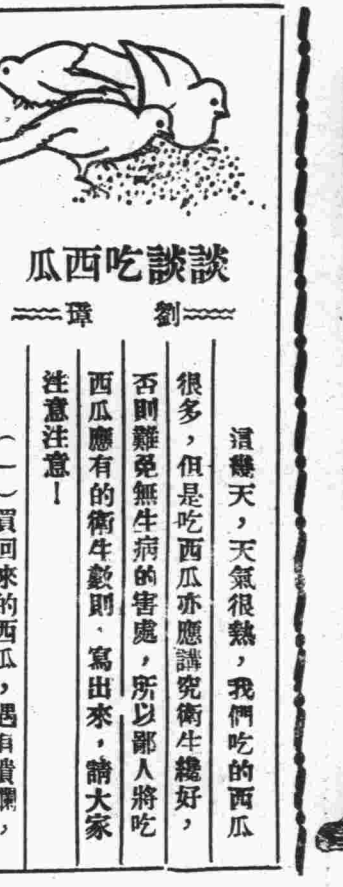 談談吃西瓜
劉璋
這幾天，天氣很熱，我們吃的西瓜
很多，但是吃西瓜亦應講究衛生纔好，
否則難免無生病的害處，所以鄙人將吃
西瓜應有的衛生數則，寫出來，請大家
注意注意！
（一）買回來的西瓜，遇有潰爛，